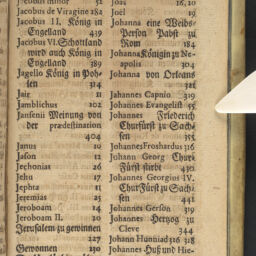 Jacobus minor 52
Jacobus de Viragine 284
Jacobus II. König in
Engelland 439
Jacobus VI. Schottland
wird auch König in
Engelland 389
Jagello König in Poh-
len 314
Jair 11
Jamblichus 102
Jansenii Meinung von
der prædestination
404
Janus 10
Jason 12
Jechonias 26
Jehu 17
Jephta 11
Jeremias 25
Jeroboam 14
Jeroboam II. 20
Jerusalem zu gewinnen
227
Gewonnen 230
Joas 16, 20
Joel 19
Johanna eine Weibs-
Person Pabst zu
Rom 184
Johanna Königin zu Ne-
apolis 304
Johanna von Orleans
321
Johannes Capnio 319
Johannes Evangelist 55
Johannes Friederich
Churfürst zu Sach-
sen 355
Johannes Froshardus 316
Johann Georg Chur-
Fürst stirbt 431
Johannes Georgius IV.
Chur Fürst zu Sach-
sen 441
Johannes Gerson 319
Johannes Hertzog zu
Cleve 344
Johann Hunniad 316 318
Johannes Huß und Hie-